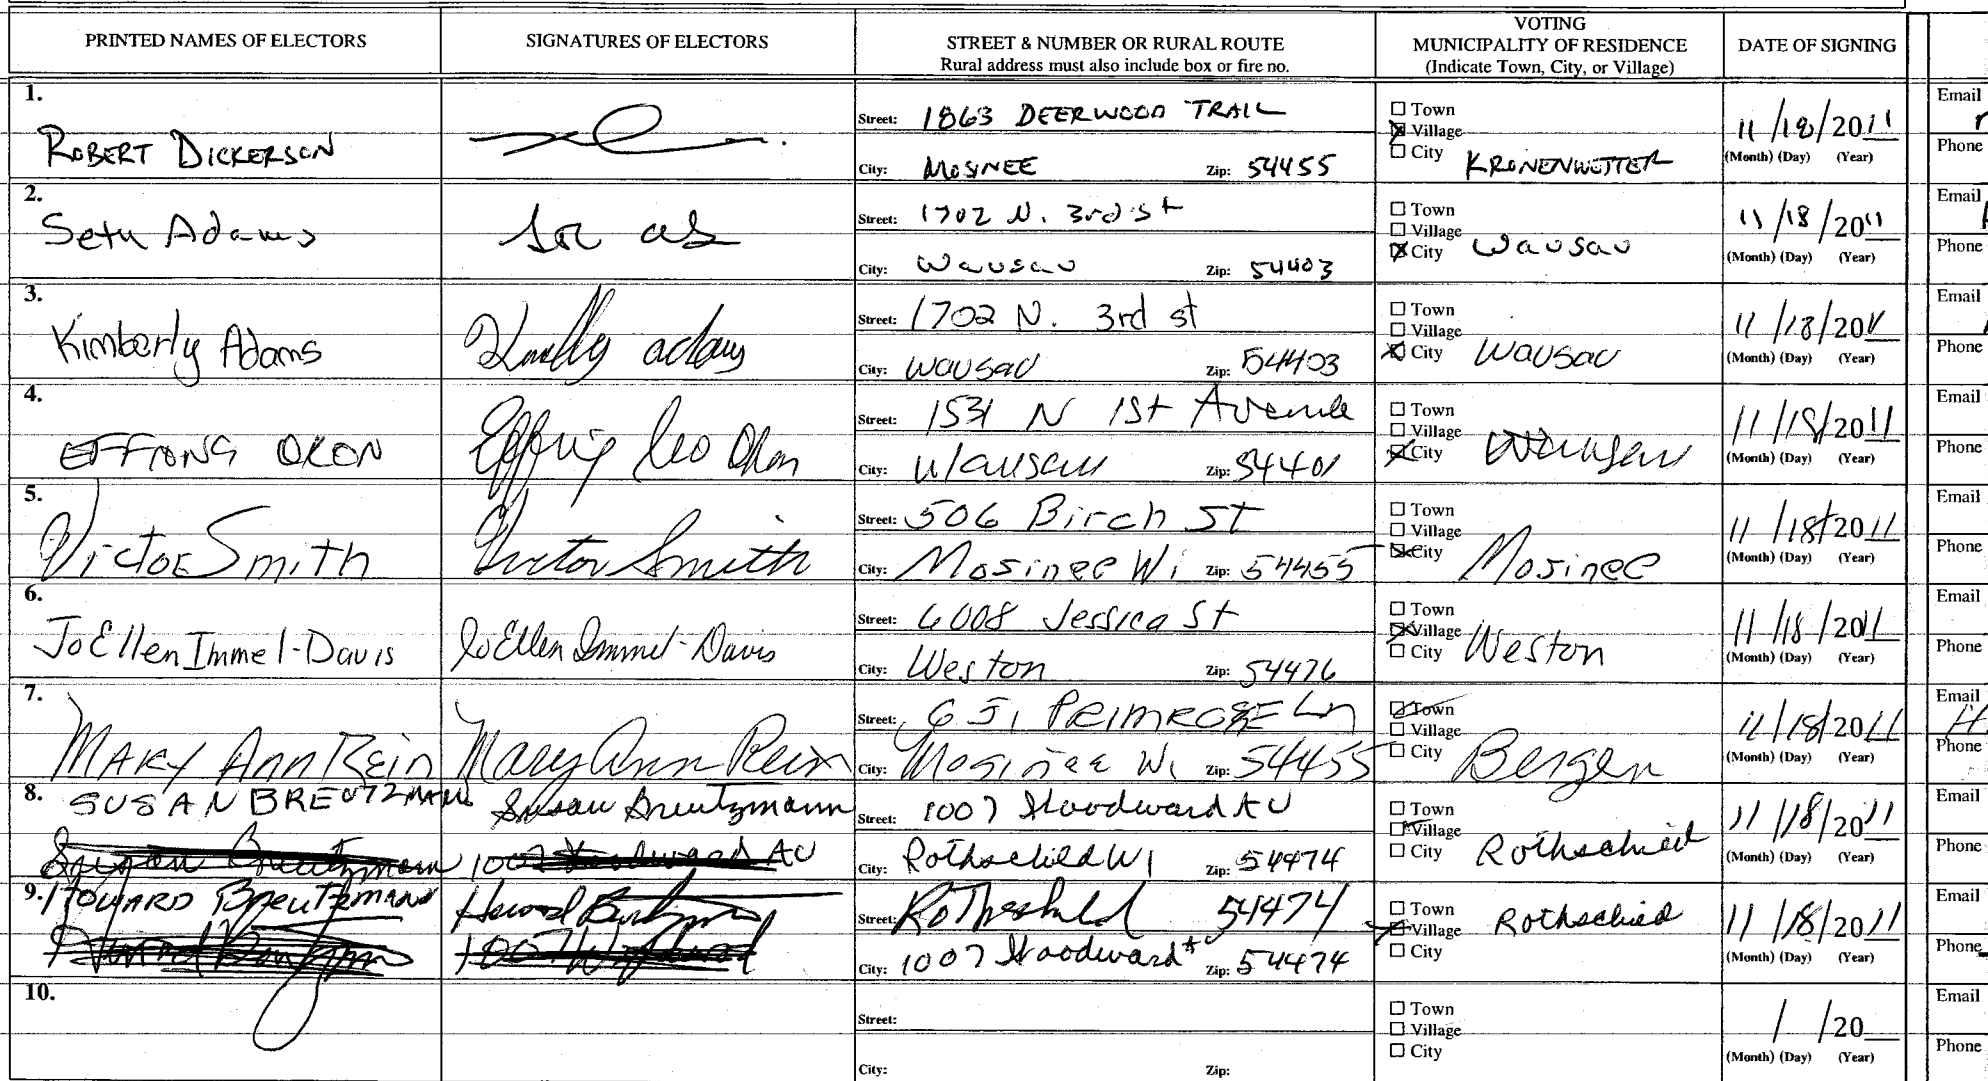 PRINTED NAMES OF ELECTORS
SIGNATURES OF ELECTORS
STREET & NUMBER OR RURAL ROUTE
Rural address must also include box or fire no.
VOTING
MUNICIPALITY OF RESIDENCE
(Indicate Town, City, or Village)
DATE OF SIGNING
1.
ROBERT DICKERSON
Street: 1863 DEERWOOD TRAIL
City: MOSINEE Zip: 54455
Town
Village
City KRONENWETTER
11/18/2011
(Month) (Day) (Year)
Email
Phone
2.
Seth Adams
Street: 1702 N. 3rd st
City: Wausau Zip: 54403
Town
Village
City Wausau
11/18/2011
(Month) (Day) (Year)
Email
Phone
3.
Kimberly Adams
Kimberly adams
Street: 1702 N. 3rd st
City: Wausau Zip: 54403
Town
Village
City Wausau
11/18/2011
(Month) (Day) (Year)
Email
Phone
4.
EFFIONG OKON
Effiong Leo Okon
Street: 1531 N 1st Avenue
City: Wausau Zip: 54401
Town
Village
City Wausau
11/18/2011
(Month) (Day) (Year)
Email
Phone
5.
Victor Smith
Victor Smith
Street: 506 Birch ST
City: Mosinee Wi Zip: 54455
Town
Village
City Mosinee
11/18/2011
(Month) (Day) (Year)
Email
Phone
6.
JoEllen Immel-Davis
JoEllen Immel-Davis
Street: 6008 Jessica St
City: Weston Zip: 54476
Town
Village
City Weston
11/18/2011
(Month) (Day) (Year)
Email
Phone
7.
MARY Ann Rein
Mary Ann Rein
Street: 651 PRIMROSE Ln
City: Mosinee Wi Zip: 54455
Town
Village
City Bergen
11/18/2011
(Month) (Day) (Year)
Email
Phone
8.
SUSAN BREUTZMANN
Susan Breutzmann
Susan Breutzmann 1007 Woodward AV
Street: 1007 Woodward AV
City: Rothschild WI Zip: 54474
Town
Village
City Rothschild
11/18/2011
(Month) (Day) (Year)
Email
Phone
9.
HOWARD Breutzmann
Howard
1007 Woodward
Street: Rothschild 54474
City: 1007 Woodward Av Zip: 54474
Town
Village
City
Rothschild
11/18/2011
(Month) (Day) (Year)
Email
Phone
10.
Street:
City: Zip:
Town
Village
City
/ /20
(Month) (Day) (Year)
Email
Phone